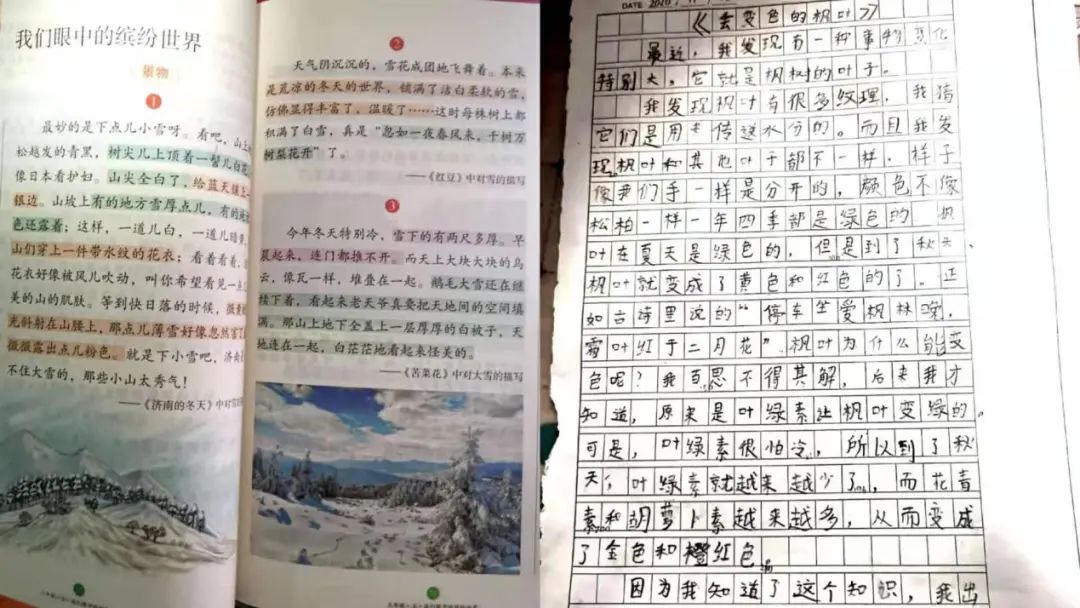 我们眼中的缤纷世界
景物
1
最妙的是下点儿小雪呀。看吧,山上
松越发的青黑,树尖儿上顶着一髻儿白花
像日本看护妇。山尖全白了,给蓝天镶上
银边。山坡上有的地方雪厚点儿,有的
色还露着;这样,一道儿白,一道儿暗
山们穿上一件带水纹的花衣;看着看着,
花衣好像被风儿吹动,叫你希望看见一
美的山的肌肤。等到快日落的时候,微黄
光斜射在山腰上,那点儿薄雪好像忽然害了
微微露出点儿粉色。就是下小雪吧,济南
不住大雪的,那些小山太秀气!
——《济南的冬天》中对雪
2
天气阴沉沉的,雪花成团地飞舞着。本来
是荒凉的冬天的世界,铺满了洁白柔软的雪,
仿佛显得丰富了,温暖了……这时每株树上都
积满了白雪,真是“忽如一夜春风来,千树万
树梨花开”了。
——《红豆》中对雪的描写
3
今年冬天特别冷,雪下的有两尺多厚。早
晨起来,连门都推不开。而天上大块大块的乌
云,像瓦一样,堆叠在一起。鹅毛大雪还在继
续下着,看起来老天爷真要把天地间的空间填
满。那山上地下全盖上一层厚厚的白被子,天
地连在一起,白茫茫地看起来怪美的。
——《苦菜花》中对大雪的描写
DATE 2020
《会变色的枫叶》
最近,我发现有一种事物变化
特别大,它就是枫树的叶子。
我发现枫叶有很多纹理,我猜
它们是用来传送水分的。而且我发
现枫叶和其他叶子都不一样,样子
像我们手一样是分开的,颜色不像
松柏一样一年四季都是绿色的
叶在夏天是绿色的,但是到了秋天
枫叶就变成了黄色和红色的了。正
如古诗里说的“停车坐爱枫林晚,
霜叶红于二月花”枫叶为什么能变
色呢?我百思不得其解,后来我才
知道,原来是叶绿素让枫叶变绿的。
可是,叶绿素很怕冷,所以到了秋
天,叶绿素就越来越少了,而花青
素和胡萝卜素越来越多,从而变成
了金色和橙红色。
因为我知道了这个知识,我出